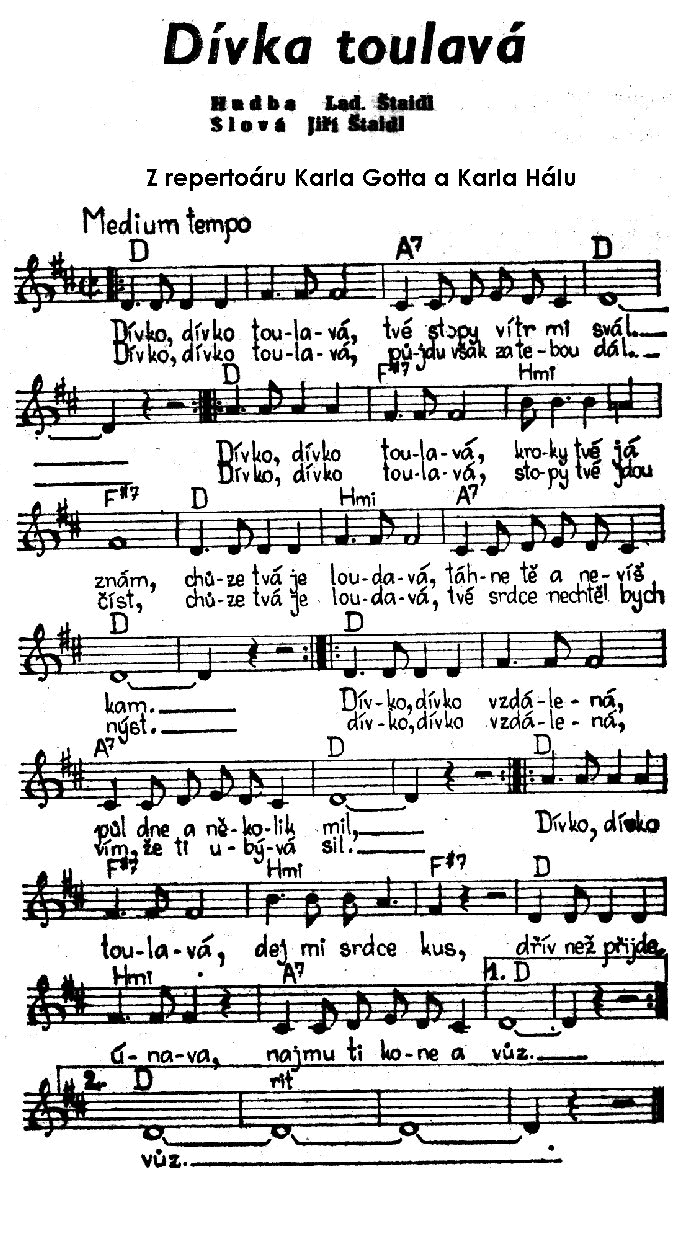 Dívka toulavá
Hudba Lad. Štaidl
Slová Jiří Štaidl
Z repertoáru Karla Gotta a Karla Hálu
Medium tempo
D A7 D
Dívko, dívko tou-la-vá, tvé stopy vítr mi svál.
Dívko, dívko tou-la-vá, pů-jdu však za te-bou dál.
D F#7 Hmi
Dívko, dívko tou-la-vá, kro-ky tvé já
Dívko, dívko tou-la-vá, sto-py tvé jdou
F#7 D Hmi A7
znám, chů-ze tvá je lou-da-vá, táh-ne tě a ne-víš
číst, chů-ze tvá je lou-da-vá, tvé srdce nechtěl bych
D D
kam. Dív-ko, dívko vzdá-le-ná,
nýst. dív-ko, dívko vzdá-le-ná,
A7 D D
půl dne a ně-ko-lik mil, Dívko, dívko
vím, že ti u-bý-vá sil.
F#7 Hmi F#7 D
tou-la-vá, dej mi srdce kus, dřív než přijde
Hmi A7 1. D
ú-na-va, najmu ti ko-ne a vůz.
2. D rit
vůz.